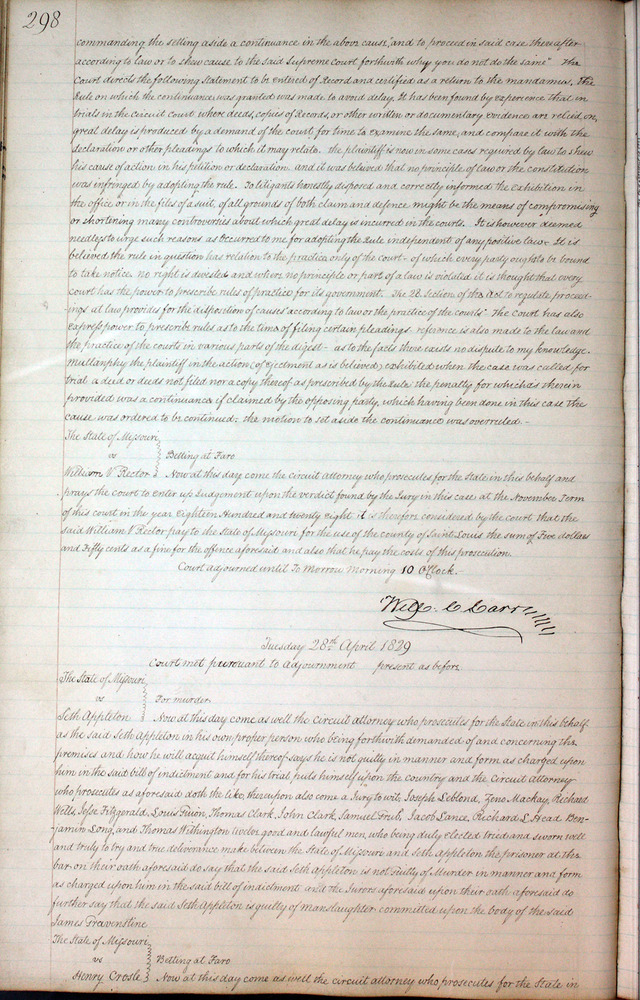 298
commanding the setting aside a continuance in the above cause, "and to proceed in said case thereafter
according to law or to shew cause to the said Supreme court forthwith why you do not do the same" The
Court directs the following statement to be entered of Record and certified as a return to the mandamus. The
Rule on which the continuance was granted was made to avoid delay. It has been found by experience that in
trials in the circuit court where deeds, copies of Records, or other written or documentary evidence are relied on,
great delay is produced by a demand of the court for time to examine the same, and compare it with the
declaration or other pleadings to which it may relate. the plaintiff is now in some cases required by law to shew
his cause of action in his petition or declaration. and it was believed that no principle of law or the constitution
was infringed by adopting the rule. To litigants honestly disposed and correctly informed the exhibition in
the office or in the files of a suit, of all grounds of both claim and defence, might be the means of compromising
or shortening many controversies about which great delay is incurred in the courts. It is however deemed
needless to urge such reasons as occurred to me for adopting the Rule independent of any positive law. It is
believed the rule in question has relation to the practice only of the court - of which every party ought to be bound
to take notice. no right is devested and where no principle or part of a law is violated it is thought that every
court has the power to prescribe rules of practice for its government. The 28. Section of the Act to regulate proceed-
ings at law provides for the disposition of causes "according to law or the practice of the courts." The court has also
express power to prescribe rules as to the time of filing certain pleadings. referance is also made to the law and
the practice of the courts in various parts of the digest - as to the facts there exists no dispute to my knowledge.
Mullanphy the plaintiff in the action (of ejectment as is believed) exhibited when the case was called for
trial a deed or deeds not filed nor a copy thereof as prescribed by the Rule the penalty for which as therein
provided was a continuance if claimed by the opposing party, which having been done in this case the
cause was ordered to be continued; the motion to set aside the continuance was overruled. -
The State of Missouri
vs Betting at Faro
William V Rector Now at this day come the circuit attorney who prosecutes for the State in this behalf and
prays the court to enter up Judgement upon the verdict found by the Jury in this case at the November Term
of this court in the year Eighteen Hundred and twenty eight it is therefore considered by the court that the
said William V Rector pay to the State of Missouri for the use of the county of Saint Louis the sum of Five dollars
and Fifty cents as a fine for the offence aforesaid and also that he pay the costs of this prosecution.
Court adjourned until To Morrow Morning 10 O'Clock.
Wm. C Carr
Tuesday 28th April 1829
Court met pursuant to adjournment present as before
The State of Missouri
vs For murder
Seth Appleton Now at this day come as well the Circuit attorney who prosecutes for the State in this behalf
as the said Seth Appleton in his own proper person who being forthwith demanded of and concerning the
premises and how he will acquit himself thereof says he is not guilty in manner and form as charged upon
him in the said bill of indictment and for his trial puts himself upon the country and the Circuit attorney
who prosecutes as aforesaid doth the like, thereupon also come a Jury to wit, Joseph Leblond, Zeno Mackay, Richard
Wells, Jesse Fitzgerald, Louis Guion, Thomas Clark, John Clark, Samuel Fruit, Jacob Lance, Richard L Head Ben-
jamin Long, and Thomas Withington twelve good and lawful men, who being duly elected tried and sworn well
and truly to try and true deliverance make between the State of Missouri and Seth Appleton the prisoner at the
bar on their oath aforesaid do say that the said Seth Appleton is not Guilty of Murder in manner and form
as charged upon him in the said bill of indictment and the Jurors aforesaid upon their oath aforesaid do
further say that the said Seth Appleton is guilty of manslaughter committed upon the body of the said
James
The State of Missouri
vs Betting at Faro
Henry Crosle Now at this day come as well the circuit attorney who prosecutes for the State in